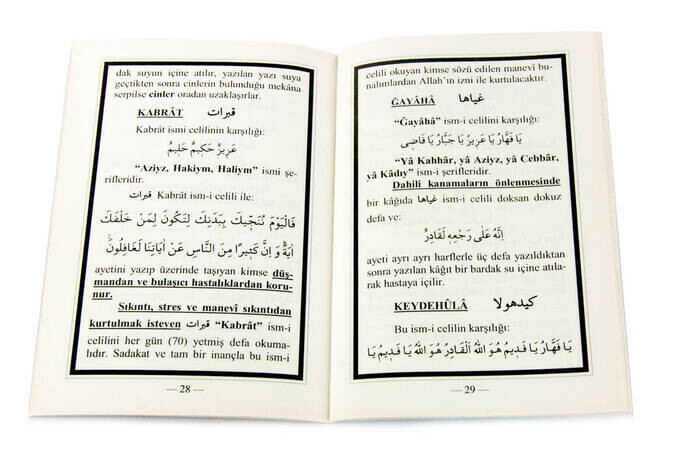 dak suyun içine atılır, yazılan yazı suya
geçtikten sonra cinlerin bulunduğu mekâna
serpilse cinler oradan uzaklaşırlar.
KABRÂT قبرات
Kabrât ismi celilinin karşılığı:
عَزِيزٌ حَكِيمٌ حَلِيمٌ
"Aziyz, Hakiym, Haliym" ismi şe-
rifleridir.
قبرات Kabrât ism-i celili ile:
فَالْيَوْمَ نُنَجِّيكَ بِبَدَنِكَ لِتَكُونَ لِمَنْ خَلْفَكَ
اٰيَةً وَ اِنَّ كَثِيرًا مِنَ النَّاسِ عَنْ اٰيَاتِنَا لَغَافِلُونَ
ayetini yazıp üzerinde taşıyan kimse düş-
mandan ve bulaşıcı hastalıklardan koru-
nur.
Sıkıntı, stres ve manevî sıkıntıdan
kurtulmak isteyen قبرات "Kabrât" ism-i
celilini her gün (70) yetmiş defa okuma-
lıdır. Sadakat ve tam bir inançla bu ism-i
— 28 —
celili okuyan kimse sözü edilen manevi bu-
nalımlardan Allah'ın izni ile kurtulacaktır.
ĞAYÂHÂ غياها
"Ğayâhâ" ism-i celilinin karşılığı:
يَا قَهَّارُ يَا عَزِيزُ يَا جَبَّارُ يَا قَاضِى
"Yâ Kahhâr, yâ Aziyz, yâ Cebbâr,
yâ Kâdıy" ism-i şerifleridir.
Dahili kanamaların önlenmesinde
bir kâğıda غياها ism-i celili doksan dokuz
defa ve:
اِنَّهُ عَلٰى رَجْعِهِ لَقَادِرٌ
ayeti ayrı ayrı harflerle üç defa yazıldıktan
sonra yazılan kâğıt bir bardak su içine atıla-
rak hastaya içilir.
KEYDEHÛLÂ كيدهولا
Bu ism-i celilin karşılığı:
يَا قَهَّارُ يَا قَدِيمُ هُوَ اللّٰهُ الْقَادِرُ هُوَ اللّٰهُ يَا قَدِيمُ يَا
— 29 —